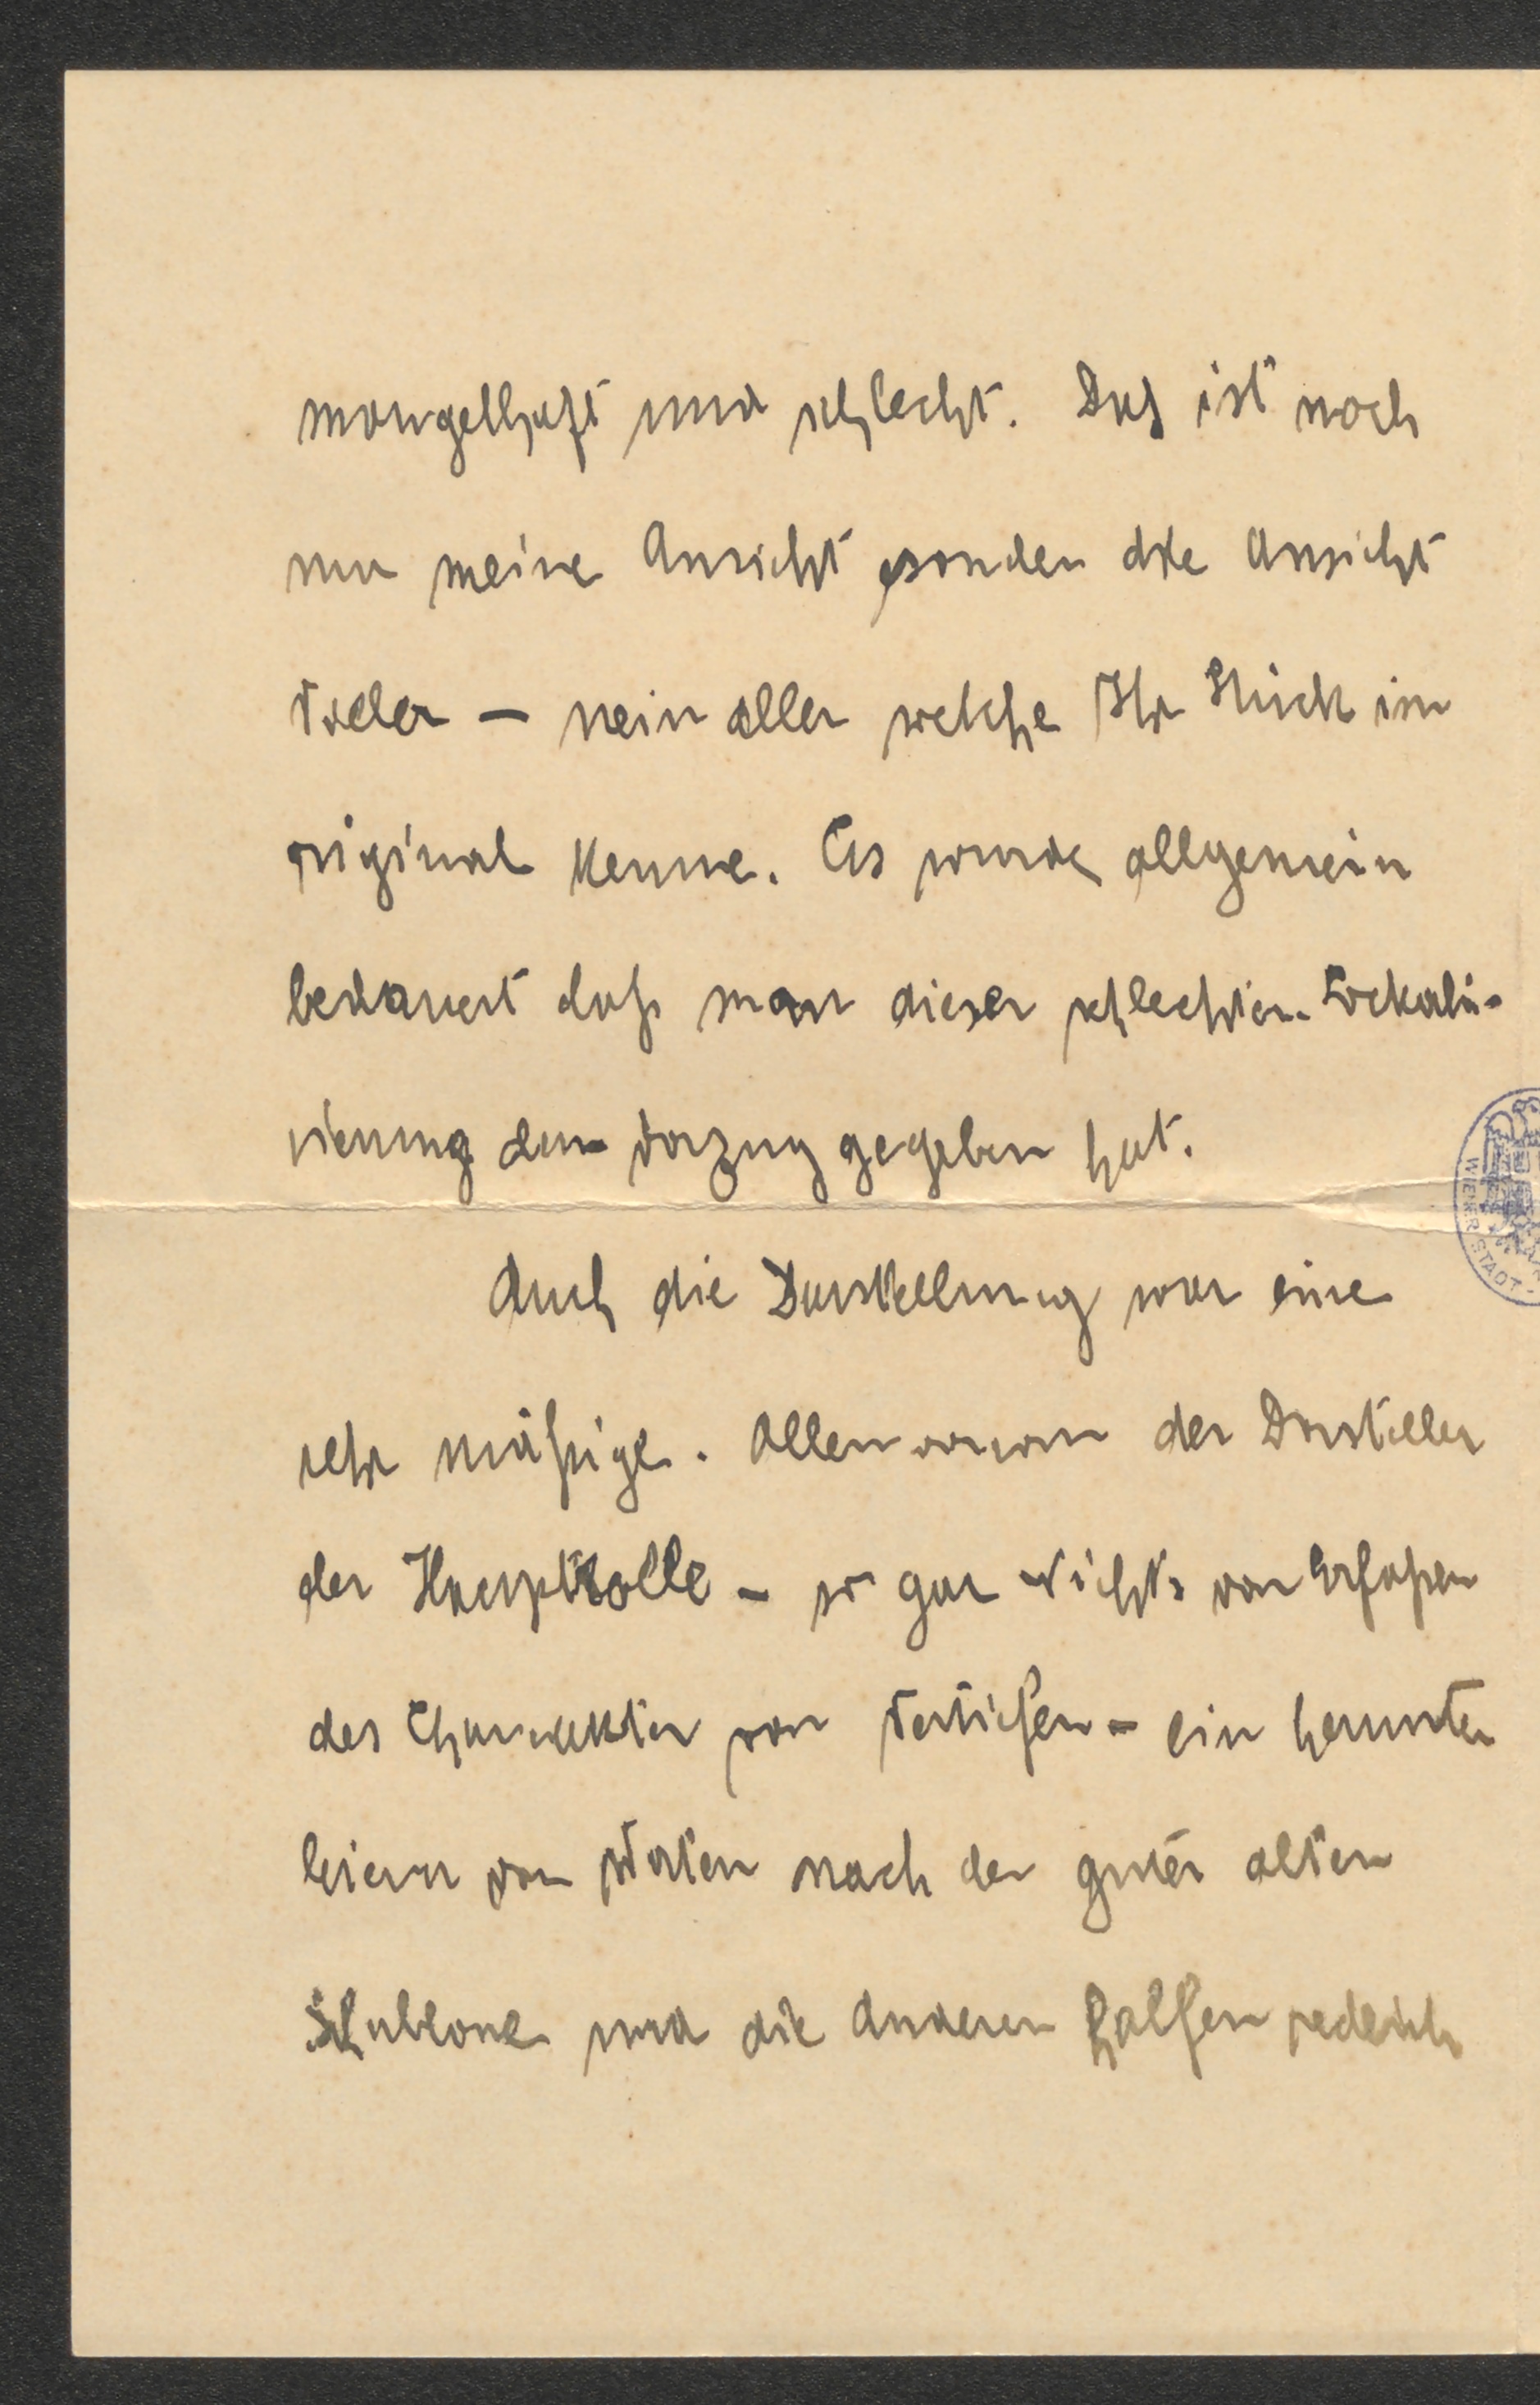 mangelhaft und schlecht. Das ist noch
nur meine Ansicht sondern die Ansicht
Vieler – nein aller welche Ihr Stück im
original kenne. Es wurde allgemein
bedauert daß man dieser schlechten Lokali-
sierung den Vorzug gegeben hat.
Auch die Darstellung war eine
sehr mäßige. Allen voran der Darsteller
der Hauptrolle – so gar nichts von Erfaßen
des Charakter von Vertiefen – ein herunter
leiern von Worten nach der guten alten
Schablone und die Anderen halfen redlich
WIENER STADT-